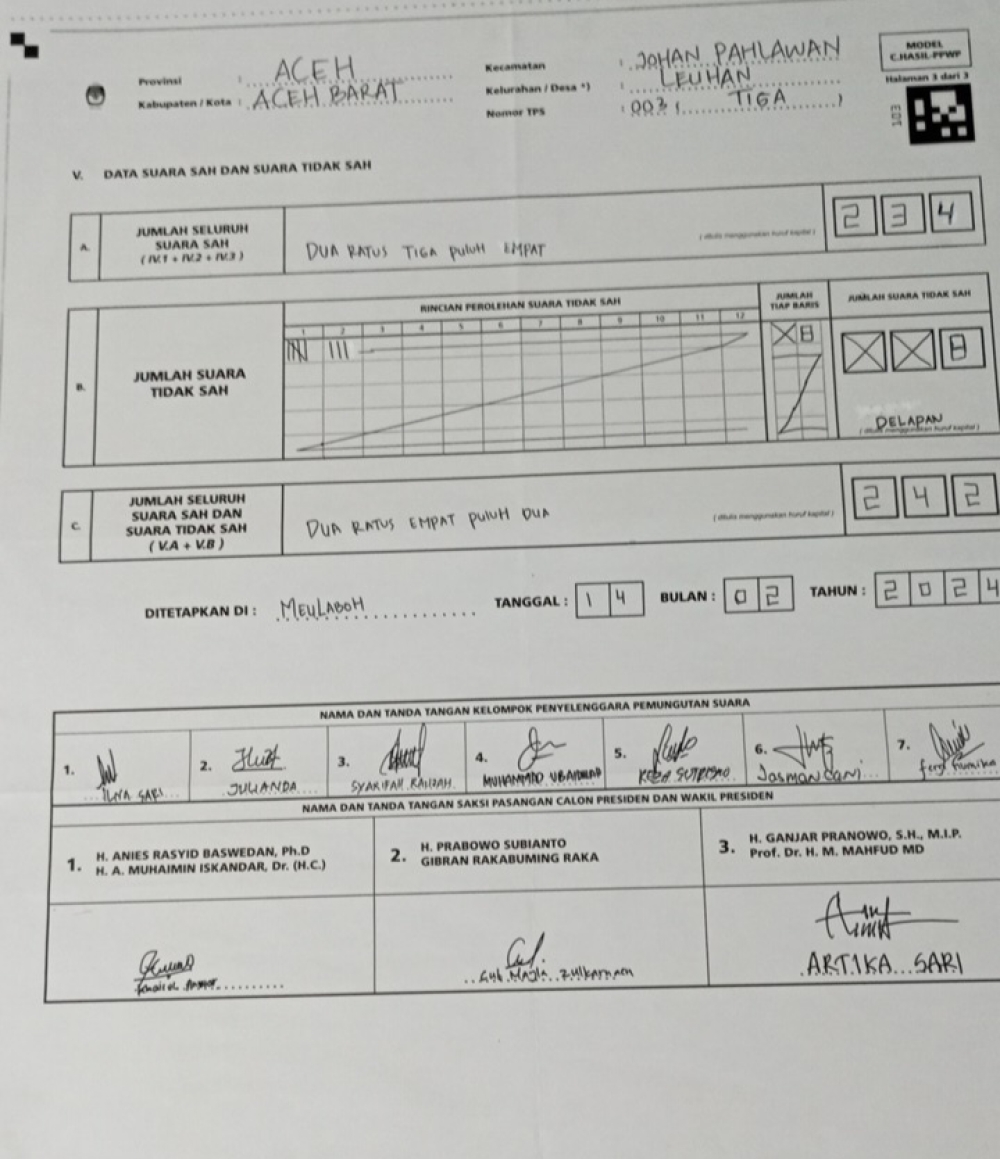 MODEL
C.HASIL-PPWP
Halaman 3 dari 3
103
Provinsi : ACEH
Kabupaten / Kota : ACEH BARAT
Kecamatan : JOHAN PAHLAWAN
Kelurahan / Desa *) : LEUHAN
Nomor TPS : 003 ( TIGA )
V. DATA SUARA SAH DAN SUARA TIDAK SAH
A. JUMLAH SELURUH
SUARA SAH
( IV.1 + IV.2 + IV.3 )
DUA RATUS TIGA PULUH EMPAT
( ditulis menggunakan huruf kapital )
2 3 4
B. JUMLAH SUARA
TIDAK SAH
RINCIAN PEROLEHAN SUARA TIDAK SAH
1 2 3 4 5 6 7 8 9 10 11 12
JUMLAH
TIAP BARIS
X 8
JUMLAH SUARA TIDAK SAH
X X 8
DELAPAN
( ditulis menggunakan huruf kapital )
C. JUMLAH SELURUH
SUARA SAH DAN
SUARA TIDAK SAH
( V.A + V.B )
DUA RATUS EMPAT PULUH DUA
( ditulis menggunakan huruf kapital )
2 4 2
DITETAPKAN DI : MEULABOH TANGGAL : 1 4 BULAN : 0 2 TAHUN : 2 0 2 4
NAMA DAN TANDA TANGAN KELOMPOK PENYELENGGARA PEMUNGUTAN SUARA
1. 2. 3. 4. 5. 6. 7.
SARI JULIANDA SYARIFAH MUHAMMAD
NAMA DAN TANDA TANGAN SAKSI PASANGAN CALON PRESIDEN DAN WAKIL PRESIDEN
1. H. ANIES RASYID BASWEDAN, Ph.D
H. A. MUHAIMIN ISKANDAR, Dr. (H.C.)
2. H. PRABOWO SUBIANTO
GIBRAN RAKABUMING RAKA
3. H. GANJAR PRANOWO, S.H., M.I.P.
Prof. Dr. H. M. MAHFUD MD
ARTIKA SARI